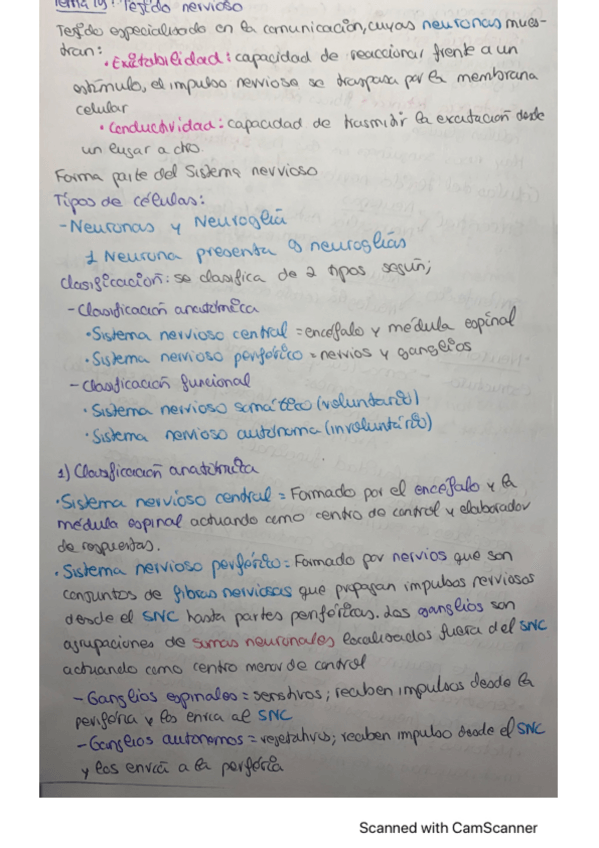 Tema 19: Tejido nervioso
Tejido especializado en la comunicación, cuyas neuronas mues-
tran:
• Excitabilidad: capacidad de reaccionar frente a un
estímulo, el impulso nervioso se traspasa por la membrana
celular
• Conductividad: capacidad de trasmitir la excitación desde
un lugar a otro.
Forma parte del Sistema nervioso
Tipos de células:
- Neuronas y Neuroglia
1 Neurona presenta neuroglias
Clasificación: se clasifica de 2 tipos según;
- Clasificación anatómica
• Sistema nervioso central = encéfalo y médula espinal
• Sistema nervioso periférico = nervios y ganglios
- Clasificación funcional
• Sistema nervioso somático (voluntario)
• Sistema nervioso autónoma (involuntario)
1) Clasificación anatómica
• Sistema nervioso central = Formado por el encéfalo y la
médula espinal actuando como centro de control y elaborador
de respuestas.
• Sistema nervioso periférico = Formado por nervios que son
conjuntos de fibras nerviosas que propagan impulsos nerviosos
desde el SNC hasta partes periféricas. Los ganglios son
agrupaciones de somas neuronales localizados fuera del SNC
actuando como centro menor de control
- Ganglios espinales = sensitivos; reciben impulsos desde la
periféria y los envia al SNC
- Ganglios autonomos = vejetativos; reciben impulso desde el SNC
y los envia a la periféria
Scanned with CamScanner